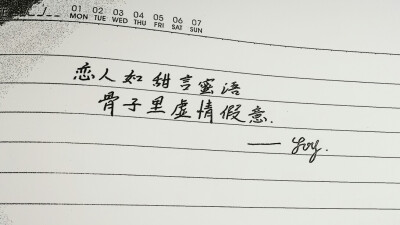 01 02 03 04 05 06 07
MON TUE WED THU FRI SAT SUN
恋人如甜言蜜语
骨子里虚情假意.